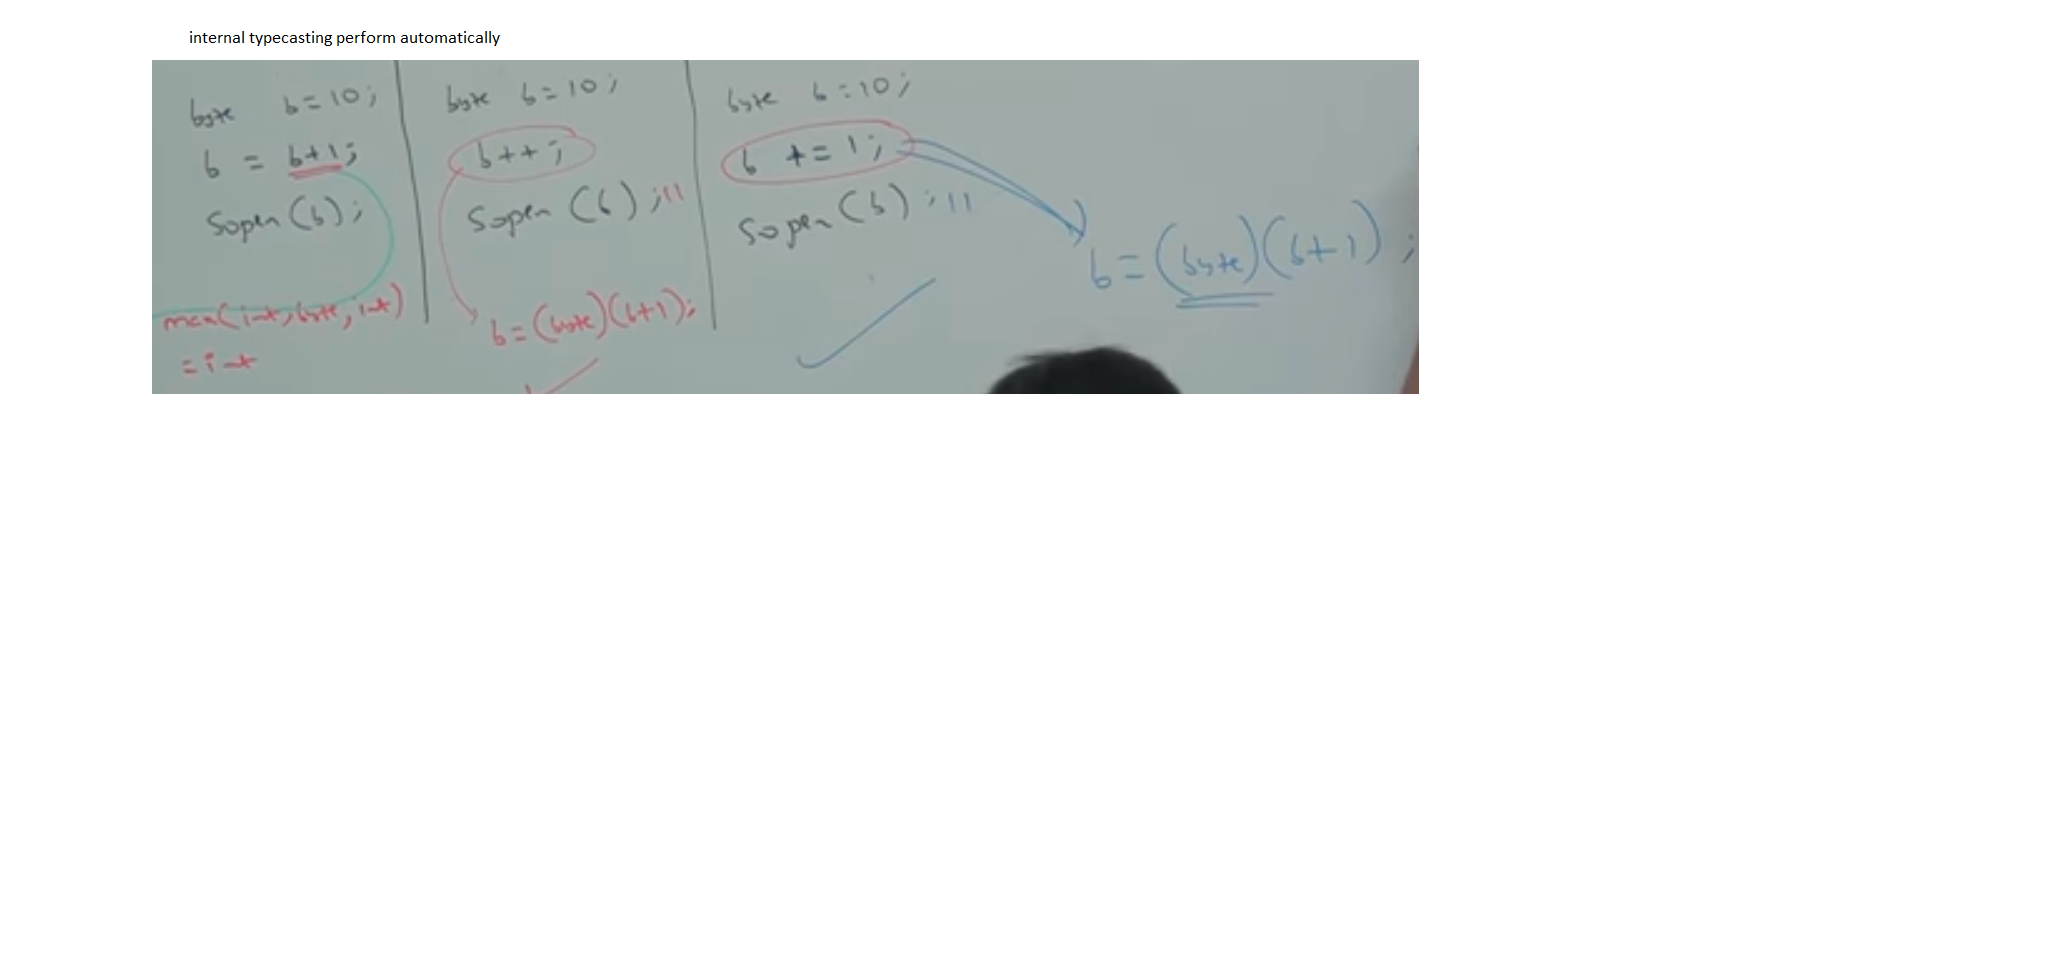 internal typecasting perform automatically
byte b=10;
b = b+1;
Sopln(b);
max(int,byte,int)
=int
byte b=10;
b++;
Sopln(b);11
b=(byte)(b+1);
byte b=10;
b += 1;
Sopln(b);11
b=(byte)(b+1);